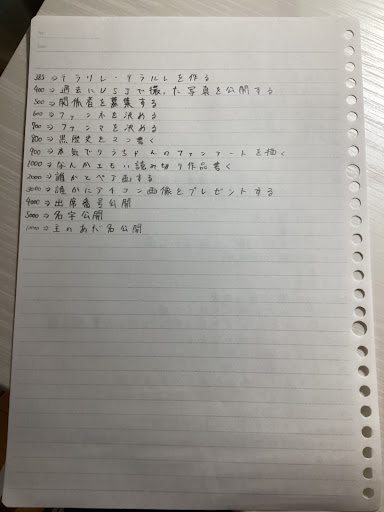 383⇒テラリレ・テラルレを作る
400⇒過去にUSJで撮った写真を公開する
500⇒関係者を募集する
600⇒ファンネを決める
700⇒ファンマを決める
800⇒黒歴史を2つ書く
900⇒本気でりうちゃんのファンアートを描く
1000⇒なんかエモい読み切り作品書く
2000⇒誰かとペア画する
3000⇒誰かにアイコン画像をプレゼントする
4000⇒出席番号公開
5000⇒名字公開
⇒主のあだ名公開